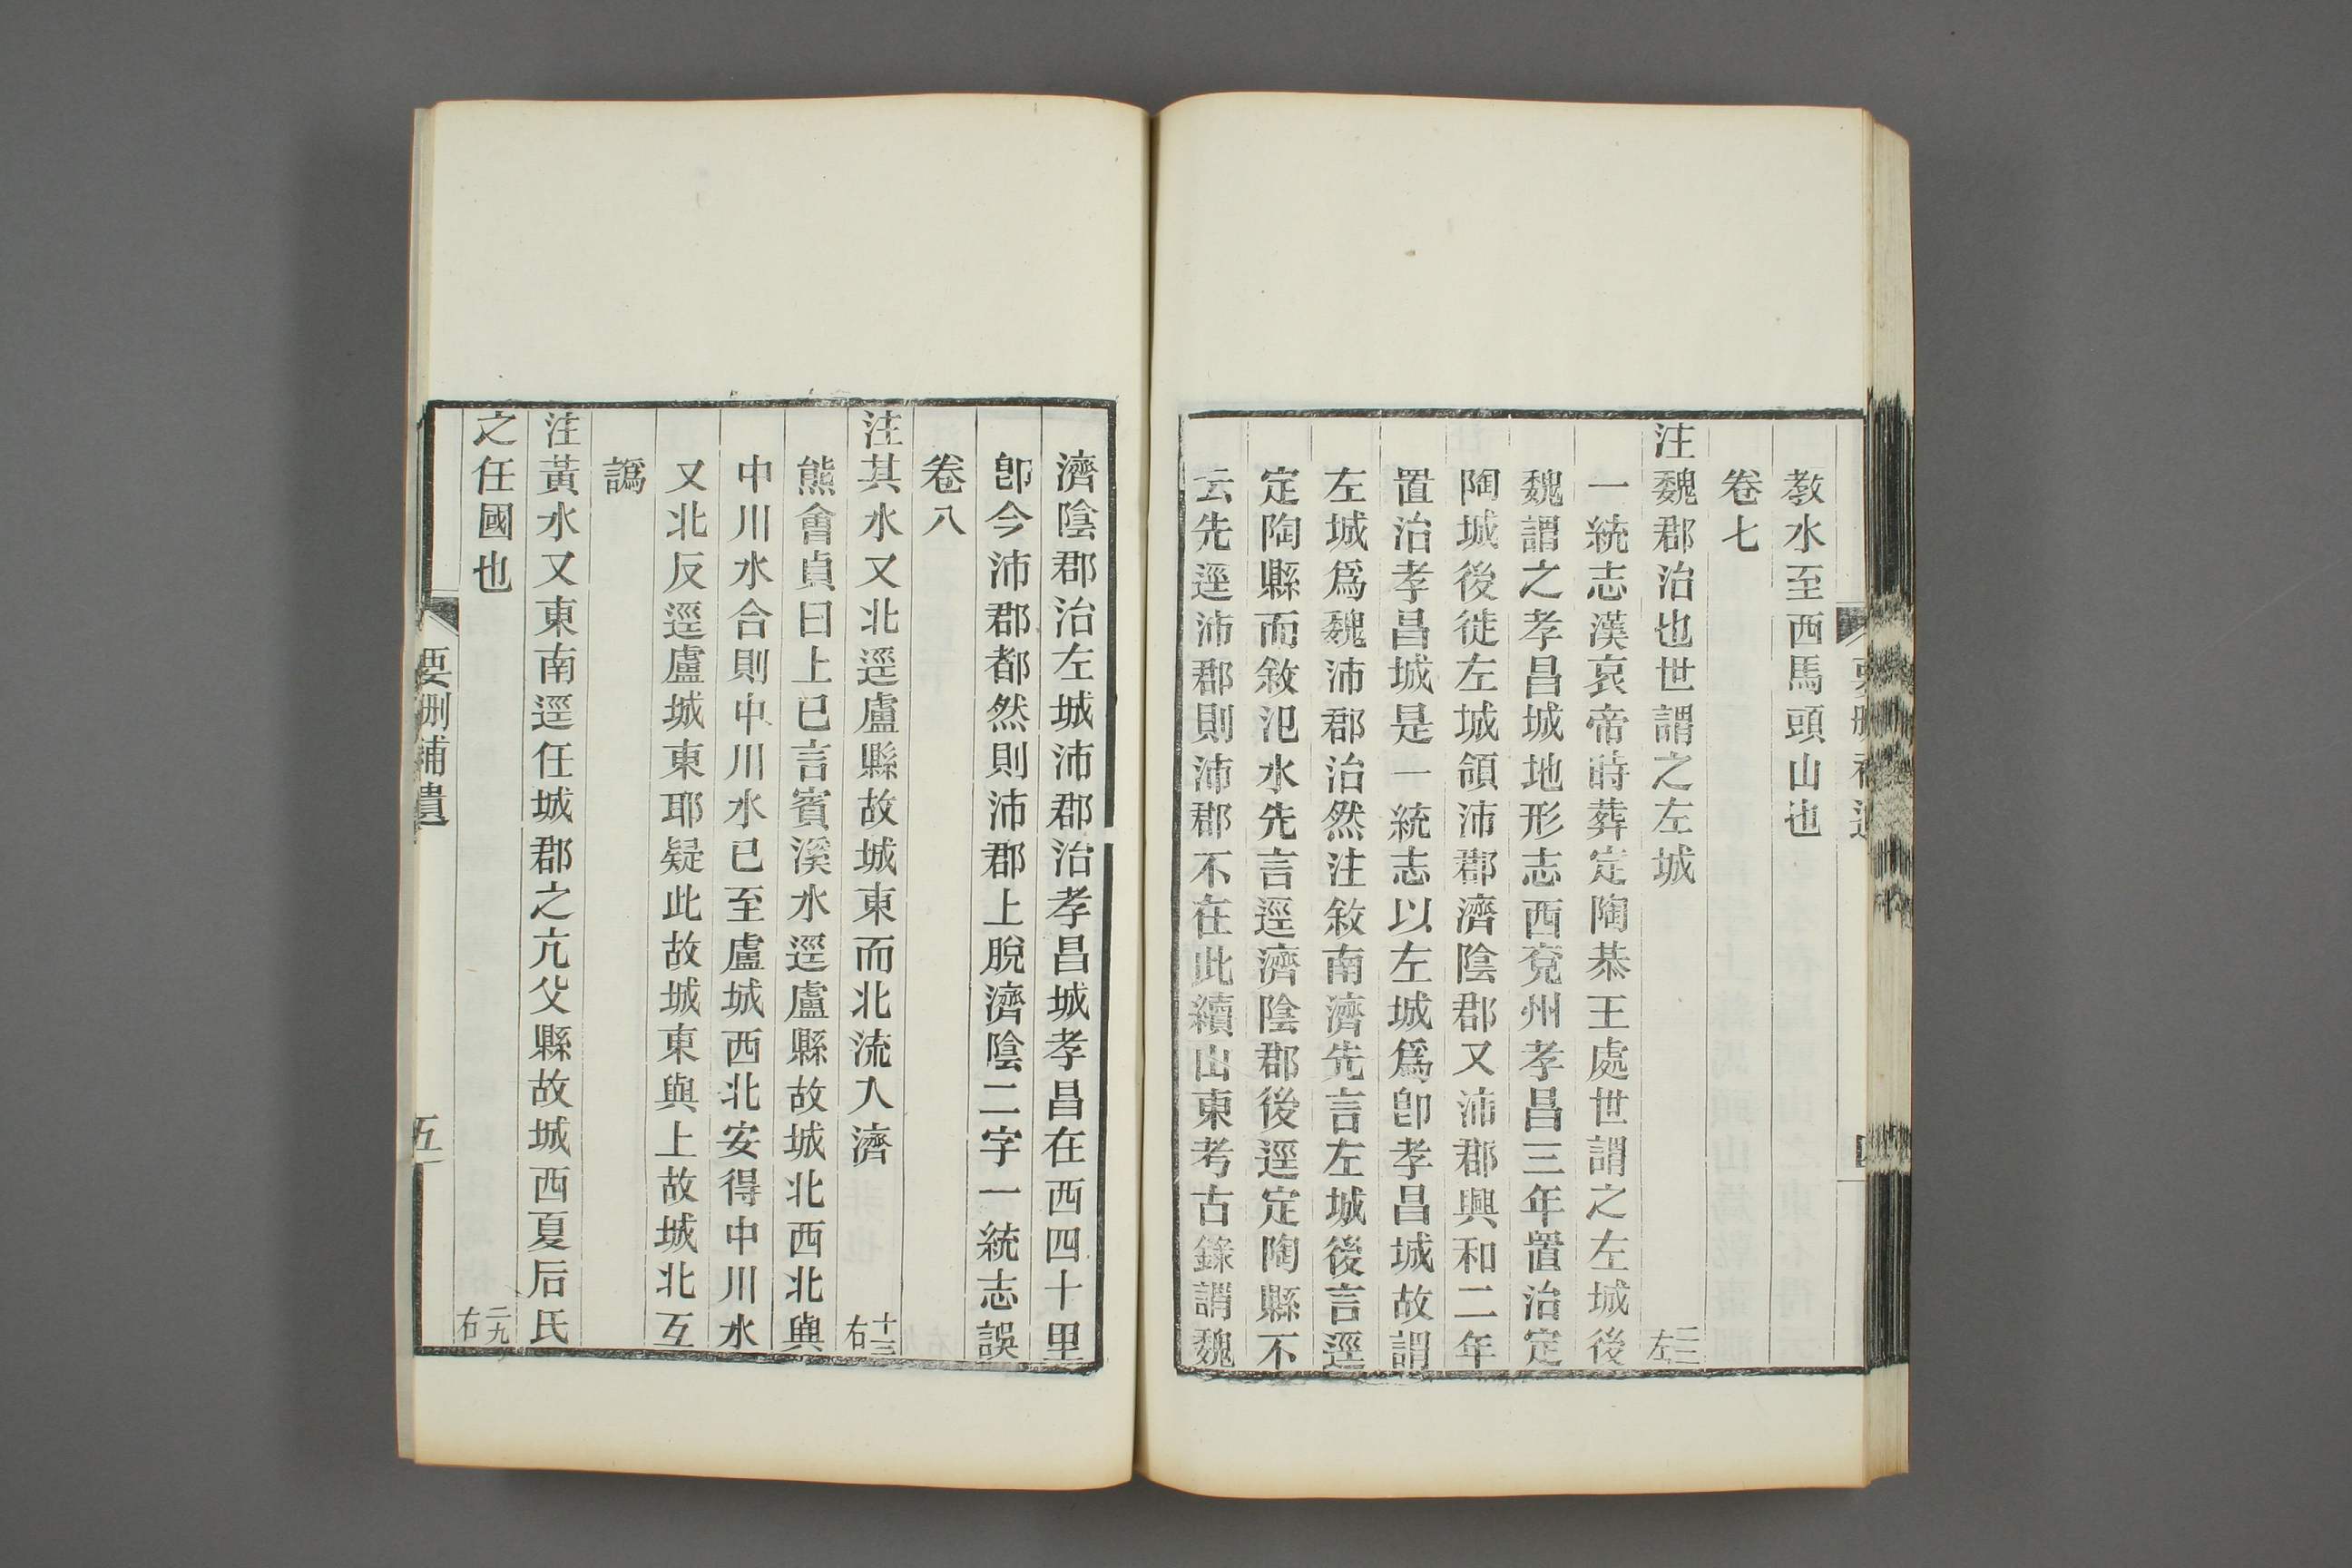 教水至西馬頭山也
卷七
注魏郡治也世謂之左城 二三左
一統志漢哀帝時葬定陶恭王處世謂之左城後
魏謂之孝昌城地形志西兗州孝昌三年置治定
陶城後徙左城領沛郡濟陰郡又沛郡興和二年
置治孝昌城是一統志以左城爲卽孝昌城故謂
左城爲魏沛郡治然注敘南濟先言左城後言逕
定陶縣而敘氾水先言逕濟陰郡後逕定陶縣不
云先逕沛郡則沛郡不在此續山東考古錄謂魏
濟陰郡治左城沛郡治孝昌城孝昌在西四十里
卽今沛郡都然則沛郡上脫濟陰二字一統志誤
卷八
注其水又北逕盧縣故城東而北流入濟 十三右
熊會貞曰上已言賓溪水逕盧縣故城北西北與
中川水合則中川水已至盧城西北安得中川水
又北反逕盧城東耶疑此故城東與上故城北互
譌
注黃水又東南逕任城郡之亢父縣故城西夏后氏
之任國也 二九右
要刪補遺 五